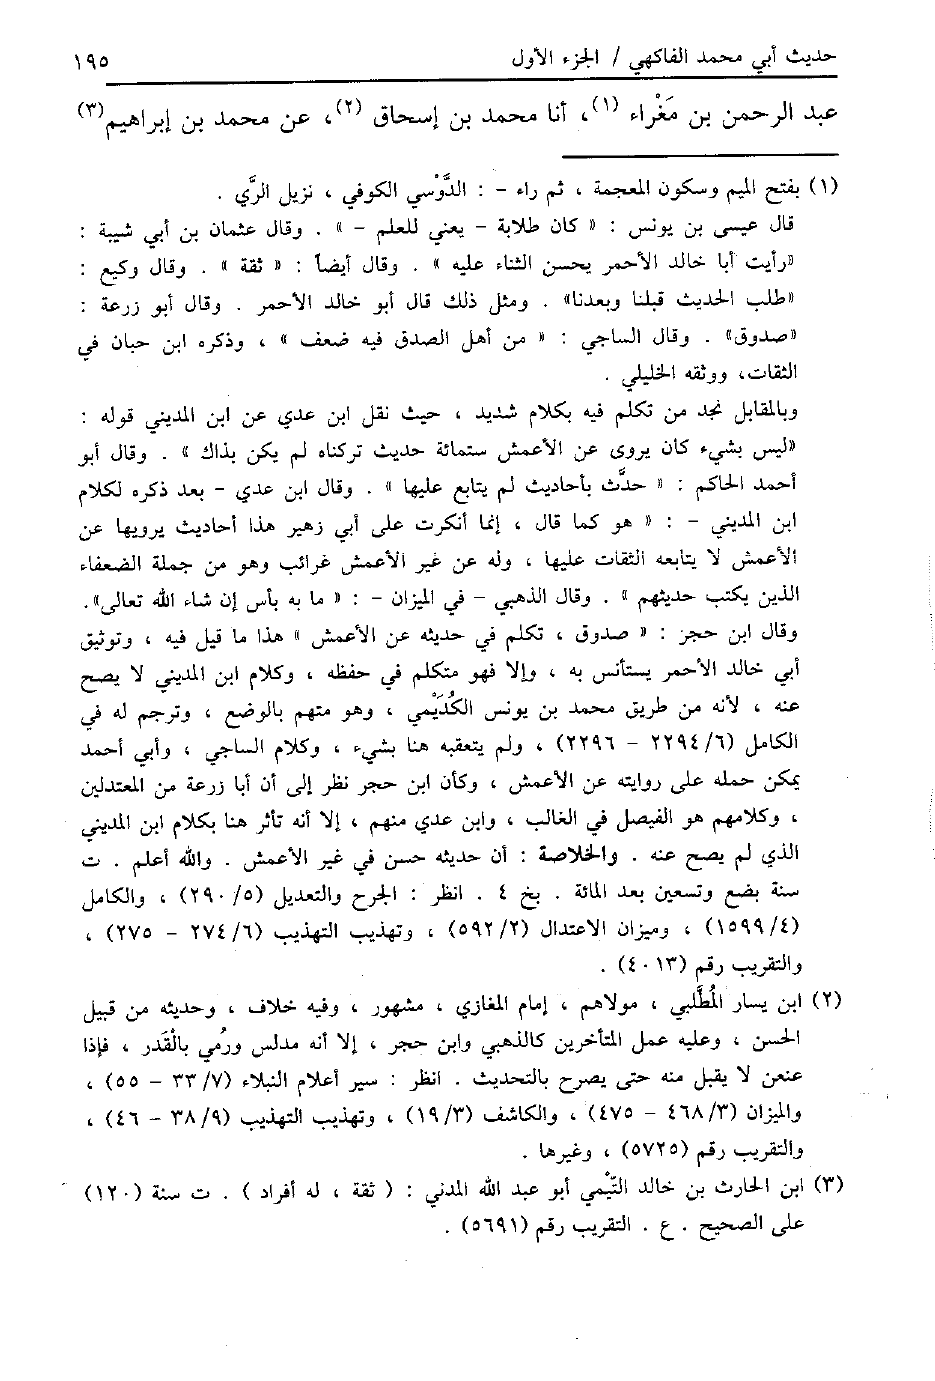 حديث أبي محمد الفاكهي / الجزء الأول ١٩٥
عبد الرحمن بن مَغْراء (١)، أنا محمد بن إسحاق (٢)، عن محمد بن إبراهيم(٣)
(١) بفتح الميم وسكون المعجمة ، ثم راء - : الدَّوْسي الكوفي ، نزيل الرَّي .
قال عيسى بن يونس : « كان طلابة - يعني للعلم - » . وقال عثمان بن أبي شيبة :
«رأيت أبا خالد الأحمر يحسن الثناء عليه » . وقال أيضاً : « ثقة » . وقال وكيع :
«طلب الحديث قبلنا وبعدنا» . ومثل ذلك قال أبو خالد الأحمر . وقال أبو زرعة :
«صدوق» . وقال الساجي : « من أهل الصدق فيه ضعف » ، وذكره ابن حبان في
الثقات، ووثقه الخليلي .
وبالمقابل نجد من تكلم فيه بكلام شديد ، حيث نقل ابن عدي عن ابن المديني قوله :
«ليس بشيء كان يروى عن الأعمش ستمائة حديث تركناه لم يكن بذاك » . وقال أبو
أحمد الحاكم : « حدَّث بأحاديث لم يتابع عليها » . وقال ابن عدي - بعد ذكره لكلام
ابن المديني - : « هو كما قال ، إنما أنكرت على أبي زهير هذا أحاديث يرويها عن
الأعمش لا يتابعه الثقات عليها ، وله عن غير الأعمش غرائب وهو من جملة الضعفاء
الذين يكتب حديثهم » . وقال الذهبي - في الميزان - : « ما به بأس إن شاء الله تعالى».
وقال ابن حجر : « صدوق ، تكلم في حديثه عن الأعمش » هذا ما قيل فيه ، وتوثيق
أبي خالد الأحمر يستأنس به ، وإلا فهو متكلم في حفظه ، وكلام ابن المديني لا يصح
عنه ، لأنه من طريق محمد بن يونس الكُدَيْمي ، وهو متهم بالوضع ، وترجم له في
الكامل (٦/ ٢٢٩٤ - ٢٢٩٦) ، ولم يتعقبه هنا بشيء ، وكلام الساجي ، وأبي أحمد
يمكن حمله على روايته عن الأعمش ، وكأن ابن حجر نظر إلى أن أبا زرعة من المعتدلين
، وكلامهم هو الفيصل في الغالب ، وابن عدي منهم ، إلا أنه تأثر هنا بكلام ابن المديني
الذي لم يصح عنه . والخلاصة : أن حديثه حسن في غير الأعمش . والله أعلم . ت
سنة بضع وتسعين بعد المائة . بخ ٤ . انظر : الجرح والتعديل (٥/ ٢٩٠) ، والكامل
(٤/ ١٥٩٩) ، وميزان الاعتدال (٢/ ٥٩٢) ، وتهذيب التهذيب (٦/ ٢٧٤ - ٢٧٥) ،
والتقريب رقم (٤٠١٣) .
(٢) ابن يسار المُطَّلبي ، مولاهم ، إمام المغازي ، مشهور ، وفيه خلاف ، وحديثه من قبيل
الحسن ، وعليه عمل المتأخرين كالذهبي وابن حجر ، إلا أنه مدلس ورُمي بالْقَدر ، فإذا
عنعن لا يقبل منه حتى يصرح بالتحديث . انظر : سير أعلام النبلاء (٧/ ٣٣ - ٥٥) ،
والميزان (٣/ ٤٦٨ - ٤٧٥) ، والكاشف (٣/ ١٩) ، وتهذيب التهذيب (٩/ ٣٨ - ٤٦) ،
والتقريب رقم (٥٧٢٥) ، وغيرها .
(٣) ابن الحارث بن خالد التَّيْمي أبو عبد الله المدني : ( ثقة ، له أفراد ) . ت سنة (١٢٠)
على الصحيح . ع . التقريب رقم (٥٦٩١) .